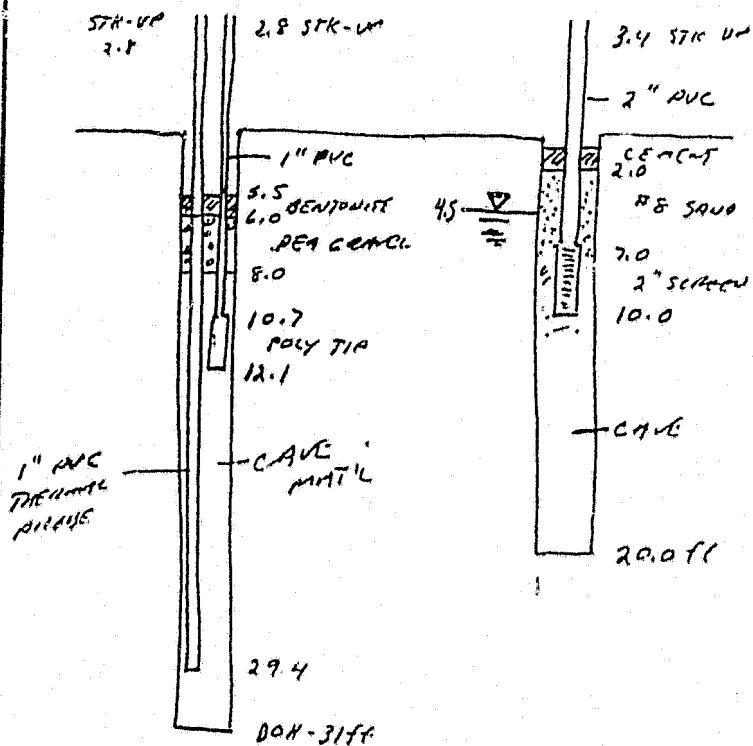 STK-UP
2.8
2.8 STK-UP
1" PVC
5.5
BENTONITE
6.0
PEA GRAVEL
8.0
10.7
POLY TIP
12.1
1" PVC
THERMAL
CAVE
MAT'L
29.4
BOH-31ft
3.4 STK UP
2" PVC
CEMENT
2.0
#8 SAND
4.5
7.0
2" SCREEN
10.0
CAVE
20.0 ft